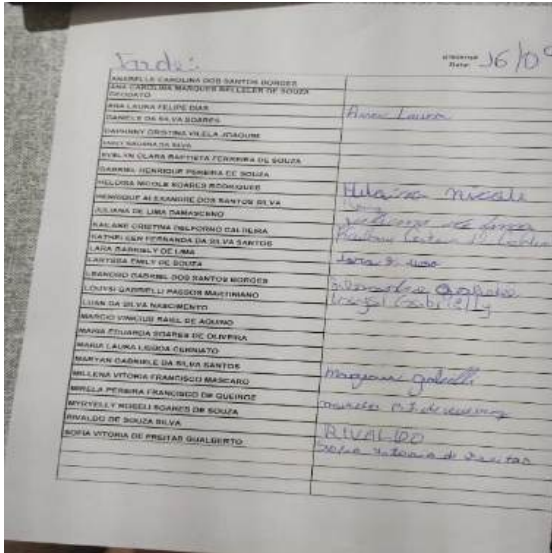 Tarde:
Data: 16/0
ANABELLE CAROLINA DOS SANTOS BORGES
ANA CAROLINA MARQUES BELLELER DE SOUZA
DEODATO
ANA LAURA FELIPE DIAS Ana Laura
DANIELE DA SILVA SOARES
DAPHINNY CRISTINA VILELA JOAQUIM
EVELYN CLARA BAPTISTA FERREIRA DE SOUZA
GABRIEL HENRIQUE PEREIRA DE SOUZA
HELOISA NICOLE SOARES RODRIGUES Heloisa nicole
HENRIQUE ALEXANDRE DOS SANTOS SILVA
JULIANA DE LIMA DAMASCENO Juliana de lima
KAILANE CRISTINA DELFORNO CALDEIRA
KATHELEEN FERNANDA DA SILVA SANTOS
LARA GABRIELY DE LIMA Lara g. lima
LARYSSA EMILY DE SOUZA
LEANDRO GABRIEL DOS SANTOS BORGES Leandro Gabriel
LOUYSI GABRIELLI PASSOS MARTINIANO
LUAN DA SILVA NASCIMENTO
MARCIO VINICIUS DE AQUINO
MARIA EDUARDA SOARES DE OLIVEIRA
MARIA LAURA LISBOA CERNIATO
MARYAN GABRIELE DA SILVA SANTOS
MILLENA VITORIA FRANCISCO MASCARO
MIRELA PEREIRA FRANCISCO DE QUEIROZ
MYRYELLY ROSELI SOARES DE SOUZA
RIVALDO DE SOUZA SILVA RIVALDO
SOFIA VITORIA DE FREITAS GUALBERTO Sofia Vitoria de Freitas